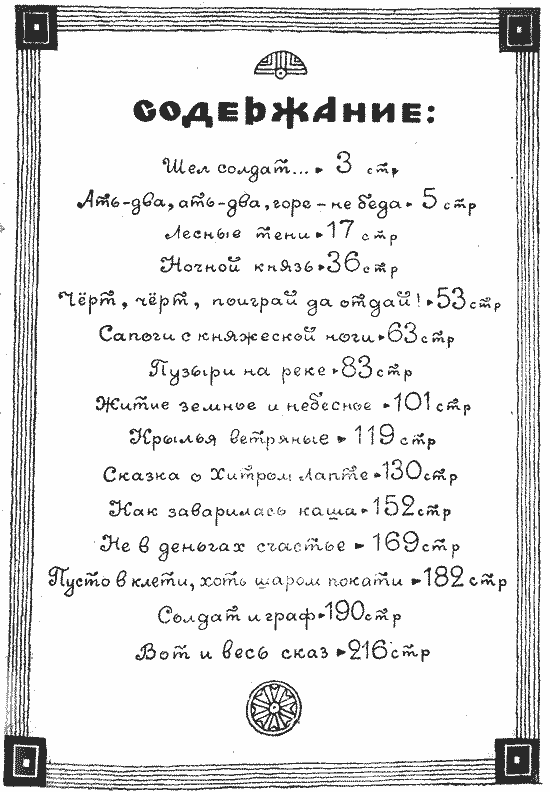 СОДЕРЖАНИЕ:
Шел солдат... ▸ 3 стр
Ать-два, ать-два, горе - не беда ▸ 5 стр
Лесные тени ▸ 17 стр
Ночной князь ▸ 36 стр
Чёрт, чёрт, поиграй да отдай! ▸ 53 стр
Сапоги с княжеской ноги ▸ 63 стр
Пузыри на реке ▸ 83 стр
Житие земное и небесное ▸ 101 стр
Крылья ветряные ▸ 119 стр
Сказка о Хитром Лапте ▸ 130 стр
Как заварилась каша ▸ 152 стр
Не в деньгах счастье ▸ 169 стр
Пусто в клети, хоть шаром покати ▸ 182 стр
Солдат и граф ▸ 190 стр
Вот и весь сказ ▸ 216 стр